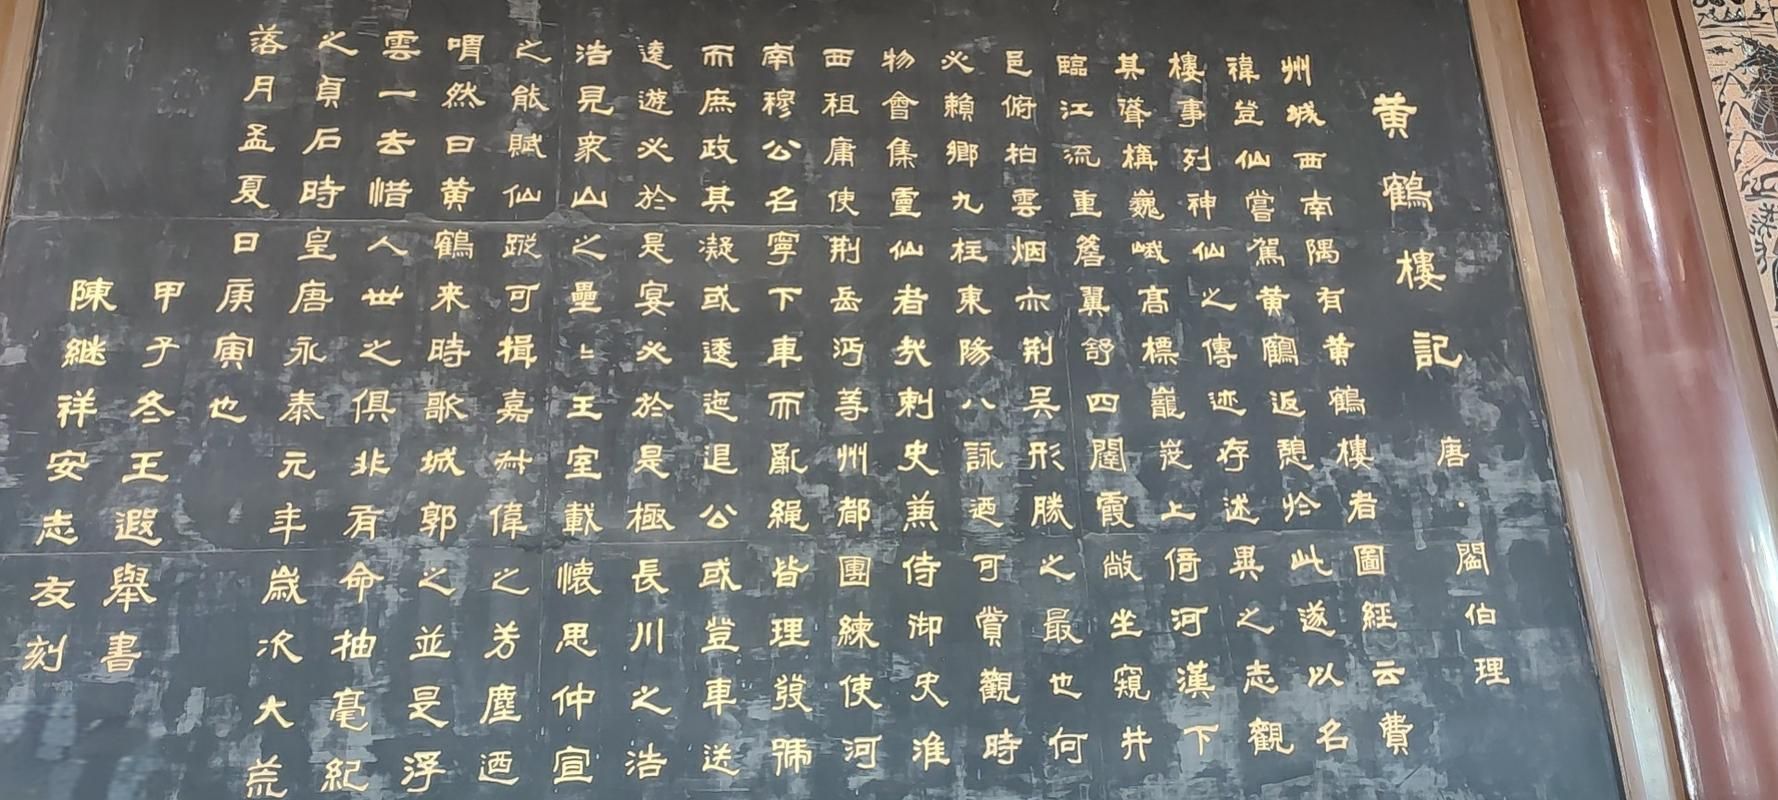 黄鶴樓記
唐·閻伯理
州城西南隅有黄鶴樓者圖經云費
褘登仙嘗駕黄鶴返憩於此遂以名
樓事列神仙之傳迹存述異之志觀
其聳構巍峨髙標巃嵸上倚河漢下
臨江流重簷翼舒四闥霞敞坐窺井
邑俯拍雲烟亦荆吴形勝之最也何
必賴鄉九柱東陽八詠迺可賞觀時
物會集靈仙者㢤刺史兼侍御史淮
西租庸使荆岳沔等州都團練使河
南穆公名寧下車而亂繩皆理發號
而庶政其凝或逶迤退公或登車送
遠遊必於是宴必於是極長川之浩
浩見衆山之壘〻王室載懷思仲宣
之能賦仙蹤可揖嘉叔偉之芳塵迺
喟然曰黄鶴来時歌城郭之並是浮
雲一去惜人世之俱非有命抽毫紀
之貞石時皇唐永泰元年歲次大荒
落月孟夏日庚寅也
甲子冬王遐舉書
陳继祥安志友刻